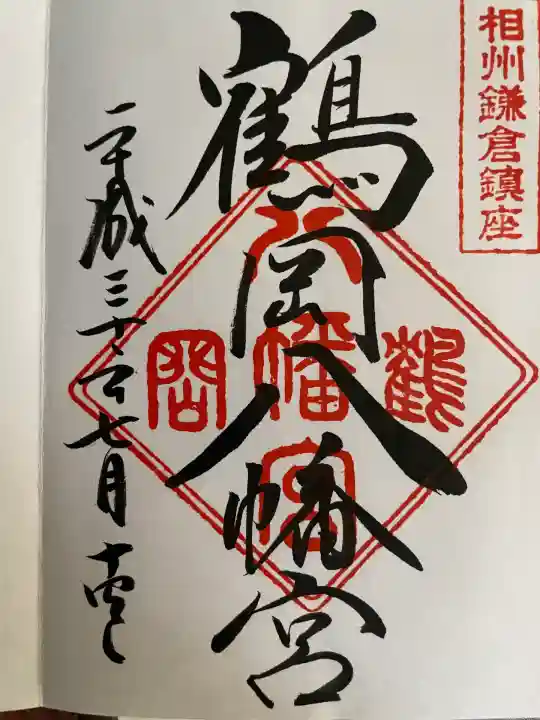 相州鎌倉鎮座
鶴岡八幡宮
鶴
八幡宮
岡
平成三十年七月十四日